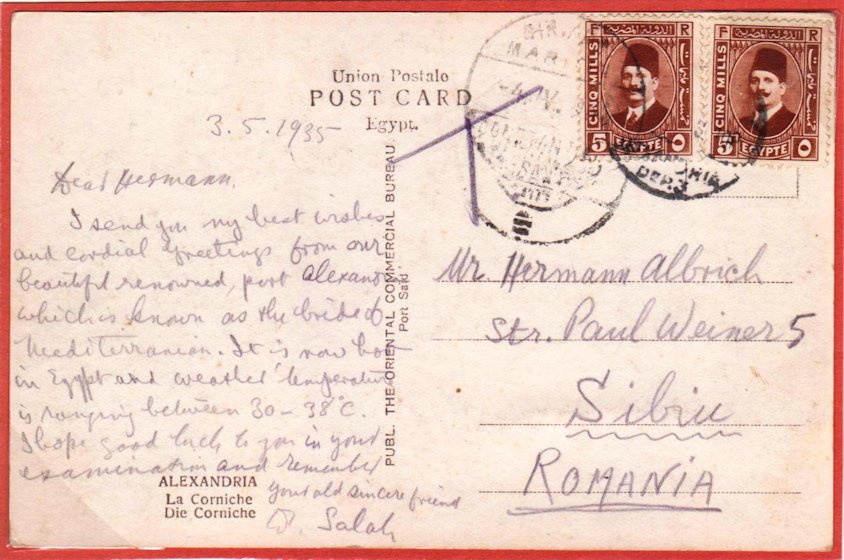 Union Postale
POST CARD
Egypt.
3.5.1935
Dear Hermann.
I send you my best wishes
and cordial greetings from our
beautiful renowned, port Alexand
which is known as the bride of
Mediterranian. It is now hot
in Egypt and weather temperature
is ranging between 30-38°C.
I hope good luck to you in your
examination and remember
your old sincere friend
Salah
ALEXANDRIA
La Corniche
Die Corniche
PUBL. THE ORIENTAL COMMERCIAL BUREAU.
Port Said
F R
الدولة المصرية
CINQ MILLS
5 EGYPTE ٥
F R
الدولة المصرية
CINQ MILLS
5 EGYPTE ٥
DEP.3
Mr. Hermann Albrich
Str. Paul Weiner 5
Sibiu
ROMANIA